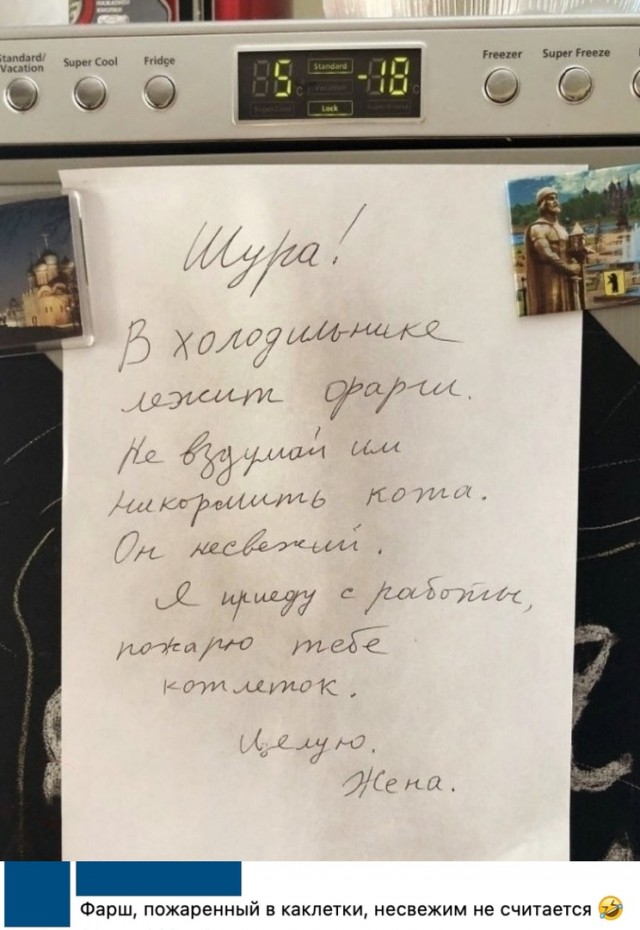 Standard/
Vacation
Super Cool
Fridge
5 C
Standard
Vacation
Lock
-18 C
Freezer
Super Freeze
Шура!
В холодильнике
лежит фарш.
Не вздумай им
накормить кота.
Он несвежий.
Я приеду с работы,
пожарю тебе
котлеток.
Целую.
Жена.
Фарш, пожаренный в каклетки, несвежим не считается 🤣